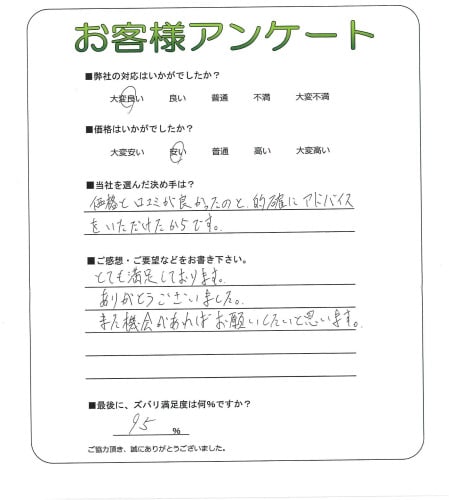 お客様アンケート
■弊社の対応はいかがでしたか？
大変良い 良い 普通 不満 大変不満
■価格はいかがでしたか？
大変安い 安い 普通 高い 大変高い
■当社を選んだ決め手は？
価格と口コミが良かったのと、的確にアドバイス
をいただけたからです。
■ご感想・ご要望などをお書き下さい。
とても満足しております。
ありがとうございました。
また機会があればお願いしたいと思います。
■最後に、ズバリ満足度は何%ですか？
95 %
ご協力頂き、誠にありがとうございました。